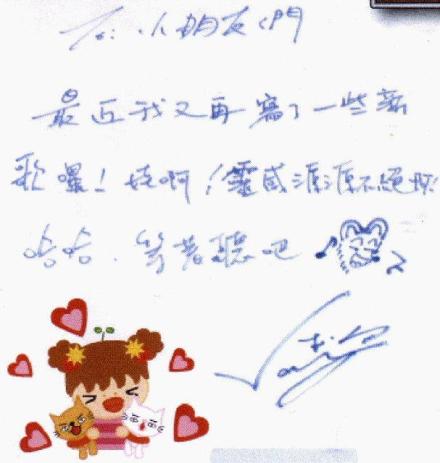 To: 小朋友們
最近我又再寫了一些新
歌囉！哇啊！靈感源源不絕呀！
哈哈．等著聽吧